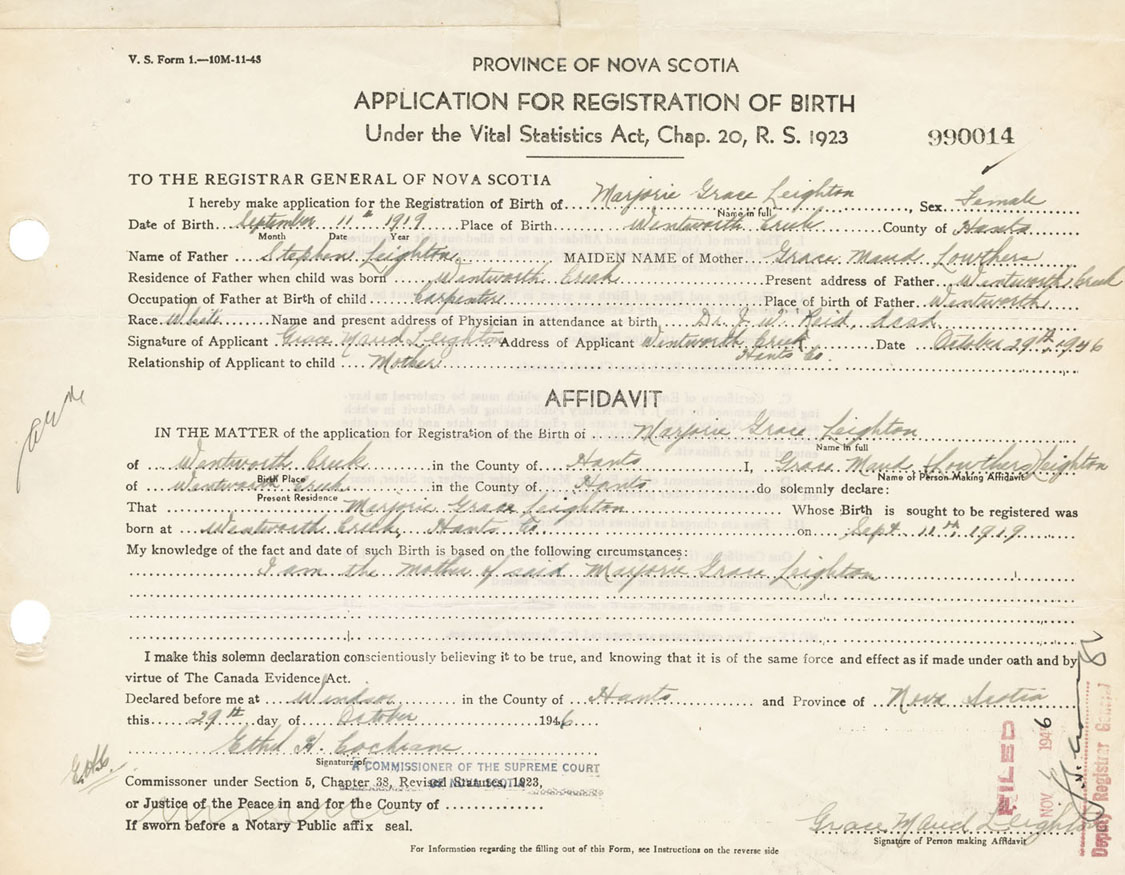 V. S. Form 1.—10M-11-43
PROVINCE OF NOVA SCOTIA
APPLICATION FOR REGISTRATION OF BIRTH
Under the Vital Statistics Act, Chap. 20, R. S. 1923
990014
TO THE REGISTRAR GENERAL OF NOVA SCOTIA
I hereby make application for the Registration of Birth of Marjorie Grace Leighton, Sex Female
Name in full
Date of Birth September 11th 1919 Place of Birth Wentworth Creek County of Hants
Month Date Year
Name of Father Stephen Leighton MAIDEN NAME of Mother Grace Maude Lowthers
Residence of Father when child was born Wentworth Creek Present address of Father Wentworth Creek
Occupation of Father at Birth of child Carpenter Place of birth of Father Wentworth
Race White Name and present address of Physician in attendance at birth Dr. J. W. Reid, dead
Signature of Applicant Grace Maud Leighton Address of Applicant Wentworth Creek Date October 29th 1946
Hants Co.
Relationship of Applicant to child Mother
AFFIDAVIT
IN THE MATTER of the application for Registration of the Birth of Marjorie Grace Leighton
Name in full
of Wentworth Creek in the County of Hants I, Grace Maud (Lowthers) Leighton
Birth Place Name of Person Making Affidavit
of Wentworth Creek in the County of Hants do solemnly declare:
Present Residence
That Marjorie Grace Leighton Whose Birth is sought to be registered was
born at Wentworth Creek, Hants Co. on Sept. 11th, 1919
My knowledge of the fact and date of such Birth is based on the following circumstances:
I am the mother of said Marjorie Grace Leighton
I make this solemn declaration conscientiously believing it to be true, and knowing that it is of the same force and effect as if made under oath and by
virtue of The Canada Evidence Act.
Declared before me at Windsor in the County of Hants and Province of Nova Scotia
this 29th day of October 1946
Ethel H. Cochrane
Signature of
A COMMISSIONER OF THE SUPREME COURT
OF NOVA SCOTIA
Commissoner under Section 5, Chapter 38, Revised Statutes, 1923,
or Justice of the Peace in and for the County of
If sworn before a Notary Public affix seal.
Grace Maud Leighton
Signature of Person making Affidavit
For Information regarding the filling out of this Form, see Instructions on the reverse side
FILED
NOV 1946
Deputy Registrar General